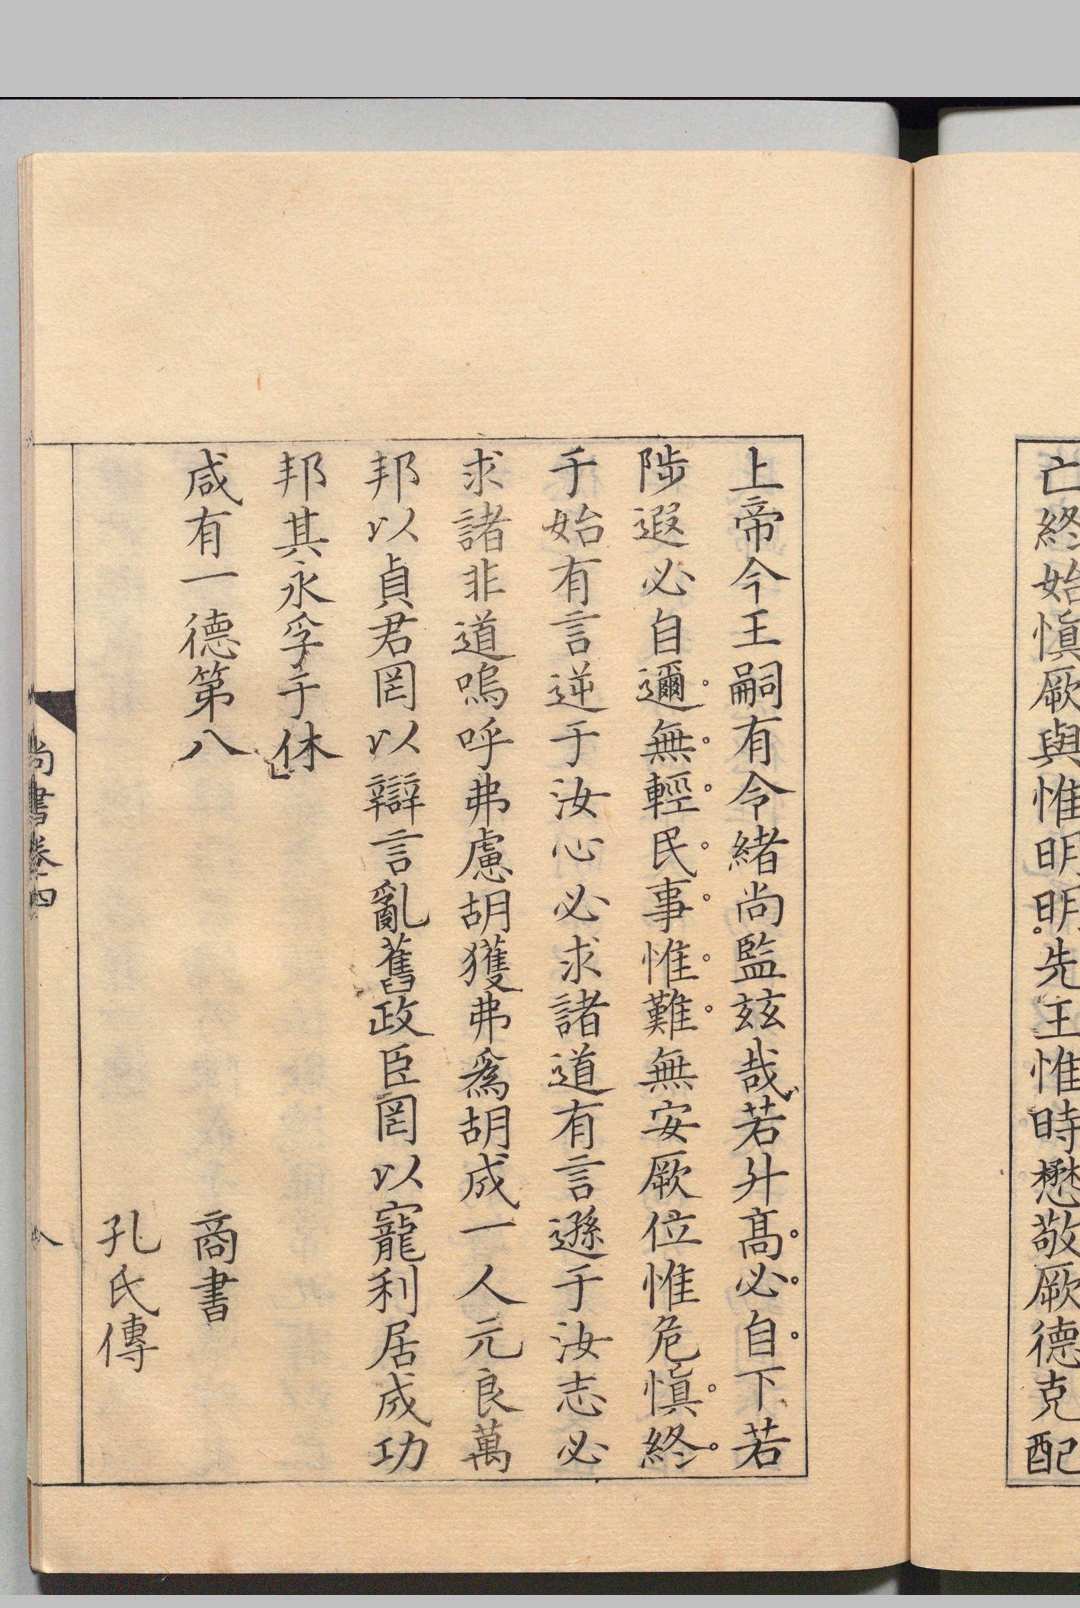 亡終始愼厥與惟明明先王惟時懋敬厥德克配
上帝今王嗣有令緒尚監玆哉若升髙必自下若
陟遐必自邇無輕民事惟難無安厥位惟危愼終
于始有言逆于汝心必求諸道有言遜于汝志必
求諸非道嗚呼弗慮胡獲弗爲胡成一人元良萬
邦以貞君罔以辯言亂舊政臣罔以寵利居成功
邦其永孚于休
咸有一德第八 商書
孔氏傳
尚書卷四 八